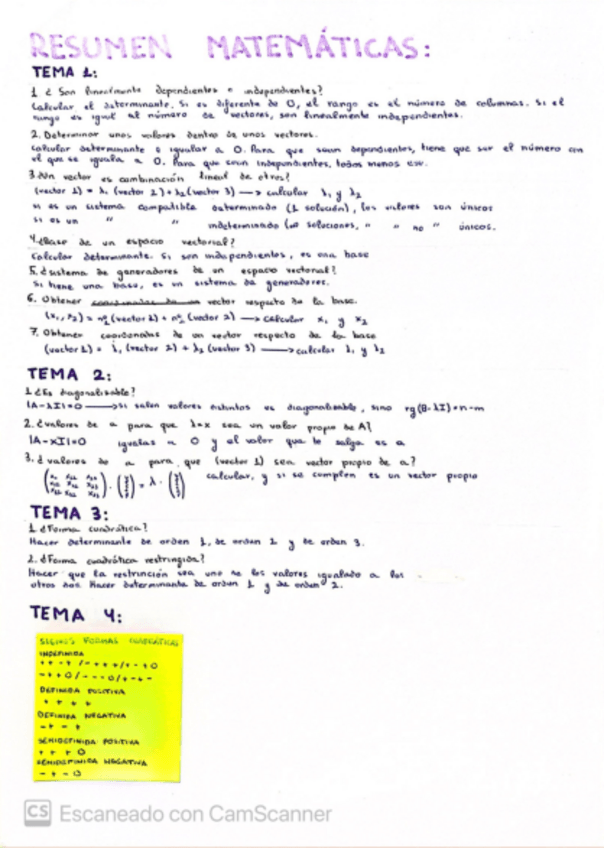 RESUMEN MATEMÁTICAS:
TEMA 1:
1. ¿ Son linealmente dependientes o independientes?
Calcular el determinante. Si es diferente de 0, el rango es el número de columnas. Si el
rango es igual al número de vectores, son linealmente independientes.
2. Determinar unos valores dentro de unos vectores.
Calcular determinante e igualar a 0. Para que sean dependientes, tiene que ser el número con
el que se iguala a 0. Para que sean independientes, todos menos ese.
3. ¿Un vector es combinación lineal de otros?
(vector 1) = λ₁ (vector 2) + λ₂ (vector 3) —> calcular λ₁ y λ₂
si es un sistema compatible determinado (1 solución), los valores son únicos
si es un " " indeterminado (∞ soluciones, " " no " únicos.
4. ¿Base de un espacio vectorial?
Calcular determinante. Si son independientes, es una base
5. ¿sistema de generadores de un espacio vectorial?
Si tiene una base, es un sistema de generadores.
6. Obtener vector respecto de la base.
(x₁, x₂) = nº₁ (vector 1) + nº₂ (vector 2) —> calcular x₁ y x₂
7. Obtener coordenadas de un vector respecto de la base
(vector 1) = λ₁ (vector 2) + λ₂ (vector 3) —> calcular λ₁ y λ₂
TEMA 2:
1. ¿Es diagonalizable?
|A-λI|=0 —> si salen valores distintos es diagonalizable, sino rg(B-λI)=n-m
2. ¿valores de a para que λ=x sea un valor propio de A?
|A-xI|=0 igualas a 0 y el valor que te salga es a
3. ¿valores de a para que (vector 1) sea vector propio de a?
calcular, y si se cumplen es un vector propio
TEMA 3:
1. ¿Forma cuadrática?
Hacer determinante de orden 1, de orden 2 y de orden 3.
2. ¿Forma cuadrática restringida?
Hacer que la restrinción sea uno de los valores igualado a los
otros dos. Hacer determinante de orden 1 y de orden 2.
TEMA 4:
SIGNOS FORMAS CUADRÁTICAS
INDEFINIDA
DEFINIDA POSITIVA
+ + + +
DEFINIDA NEGATIVA
- + - +
SEMIDEFINIDA POSITIVA
+ + + 0
SEMIDEFINIDA NEGATIVA
- + - 0
CS Escaneado con CamScanner